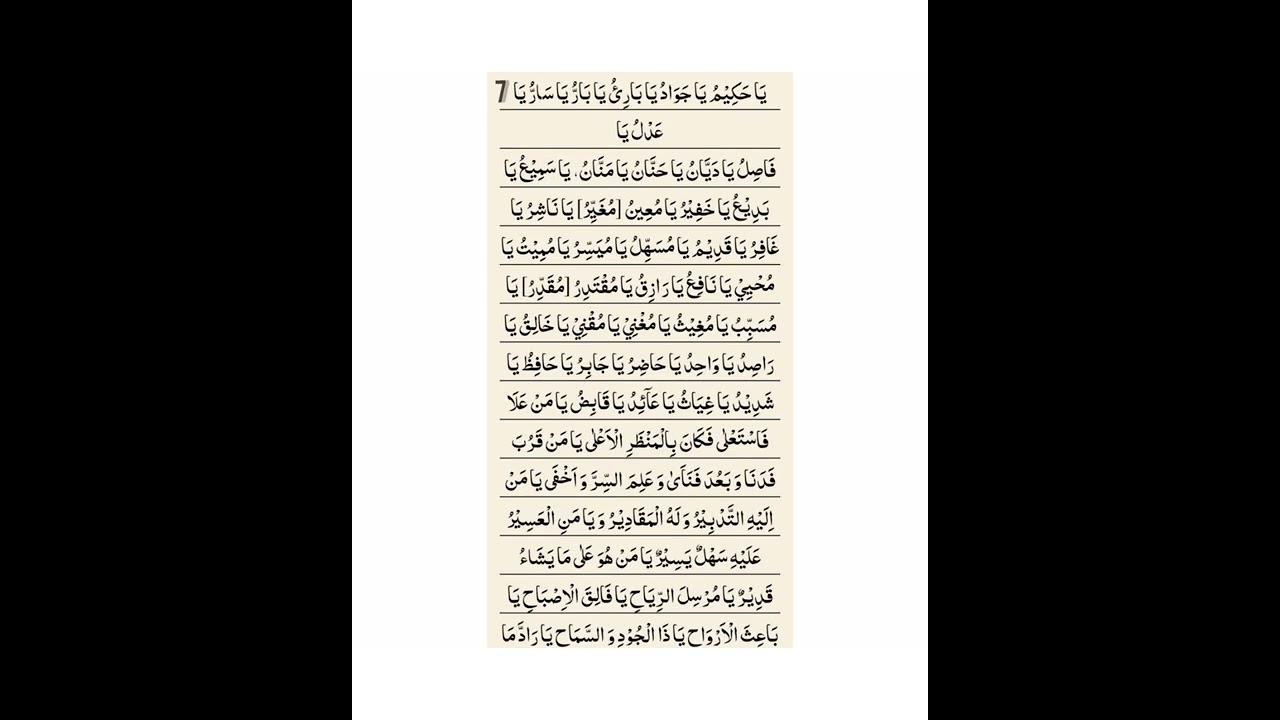 7 يَا حَكِيْمُ يَا جَوَادُ يَا بَارِئُ يَا بَارُّ يَا سَارُّ يَا
عَدْلُ يَا
فَاصِلُ يَا دَيَّانُ يَا حَنَّانُ يَا مَنَّانُ، يَا سَمِيْعُ يَا
بَدِيْعُ يَا خَفِيْرُ يَا مُعِينُ [مُغَيِّرُ] يَا نَاشِرُ يَا
غَافِرُ يَا قَدِيْمُ يَا مُسَهِّلُ يَا مُيَسِّرُ يَا مُمِيْتُ يَا
مُحْيِيْ يَا نَافِعُ يَا رَازِقُ يَا مُقْتَدِرُ [مُقَدِّرُ] يَا
مُسَبِّبُ يَا مُغِيْثُ يَا مُغْنِيْ يَا مُقْنِيْ يَا خَالِقُ يَا
رَاصِدُ يَا وَاحِدُ يَا حَاضِرُ يَا جَابِرُ يَا حَافِظُ يَا
شَدِيْدُ يَا غِيَاثُ يَا عَآئِدُ يَا قَابِضُ يَا مَنْ عَلَا
فَاسْتَعْلٰى فَكَانَ بِالْمَنْظَرِ الْاَعْلٰى يَا مَنْ قَرُبَ
فَدَنَا وَ بَعُدَ فَنَاَىٰ وَ عَلِمَ السِّرَّ وَ اَخْفَى يَا مَنْ
اِلَيْهِ التَّدْبِيْرُ وَ لَهُ الْمَقَادِيْرُ وَ يَا مَنِ الْعَسِيْرُ
عَلَيْهِ سَهْلٌ يَسِيْرٌ يَا مَنْ هُوَ عَلٰى مَا يَشَاءُ
قَدِيْرٌ يَا مُرْسِلَ الرِّيَاحِ يَا فَالِقَ الْاِصْبَاحِ يَا
بَاعِثَ الْاَرْوَاحِ يَا ذَا الْجُوْدِ وَ السَّمَاحِ يَا رَادَّ مَا